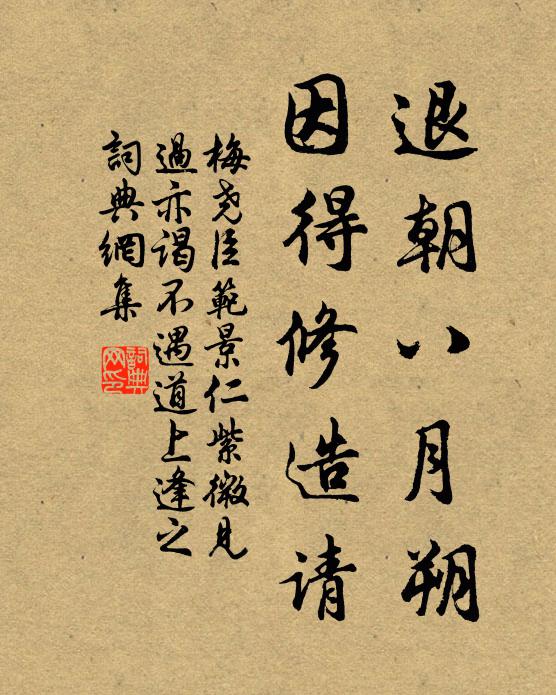 退朝八月朔
因得修造请
梅尧臣範景仁紫微見
過亦谒不遇道上逢之
詞典網集
詞典网印